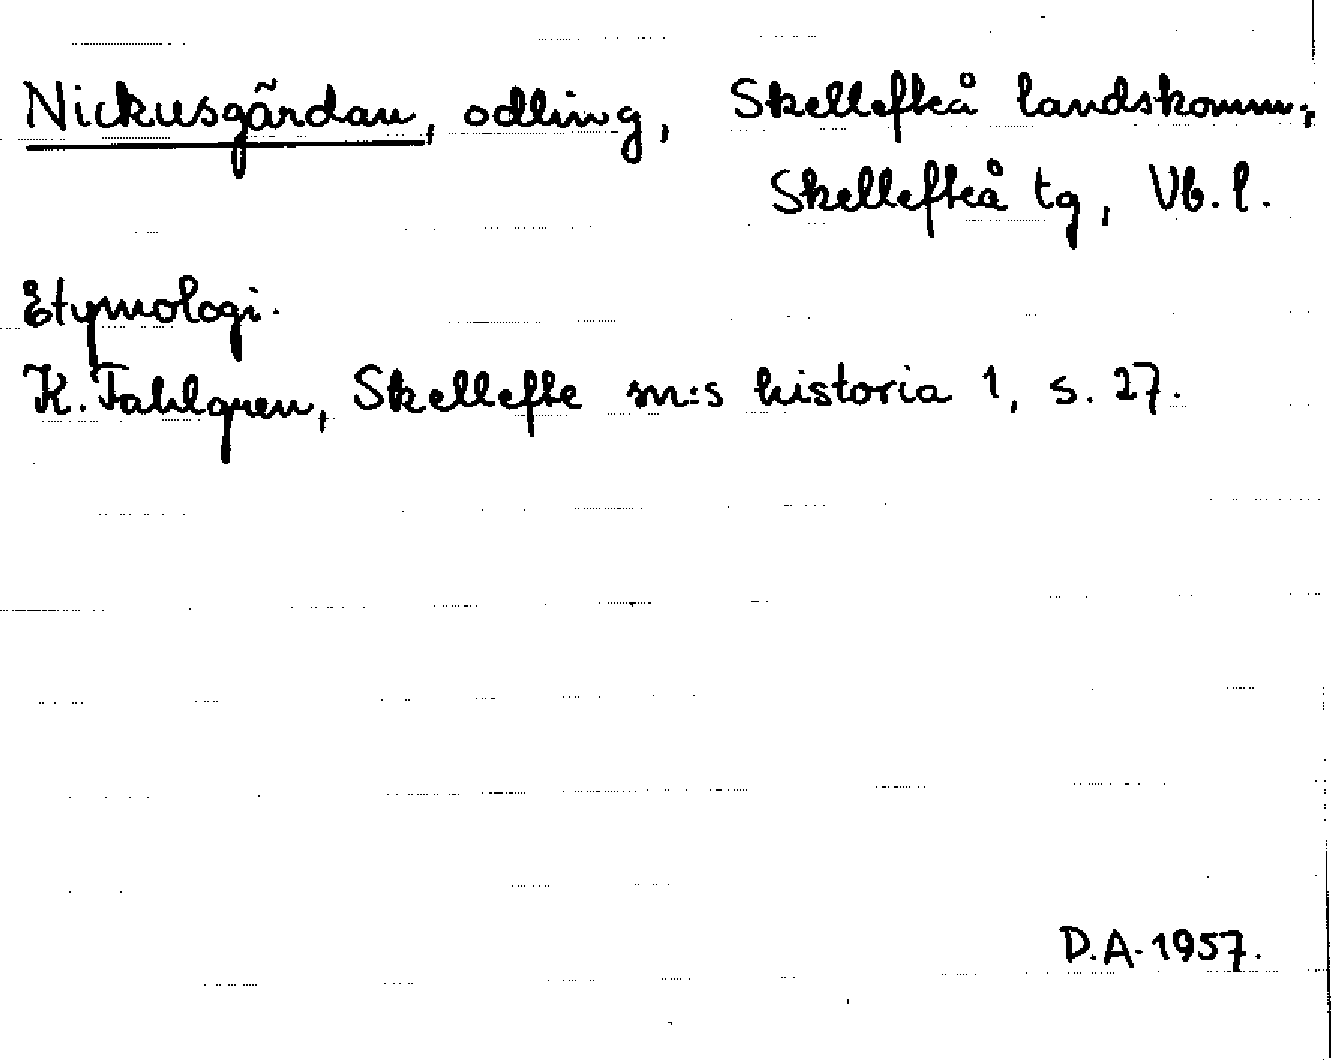 Nickusgãrdan, odling, Skellefteå landskomm;
Skellefteå tg, Vb. l.
Etymologi.
K. Fahlgren, Skellefte sn:s historia 1, s. 27.
D.A. 1957.